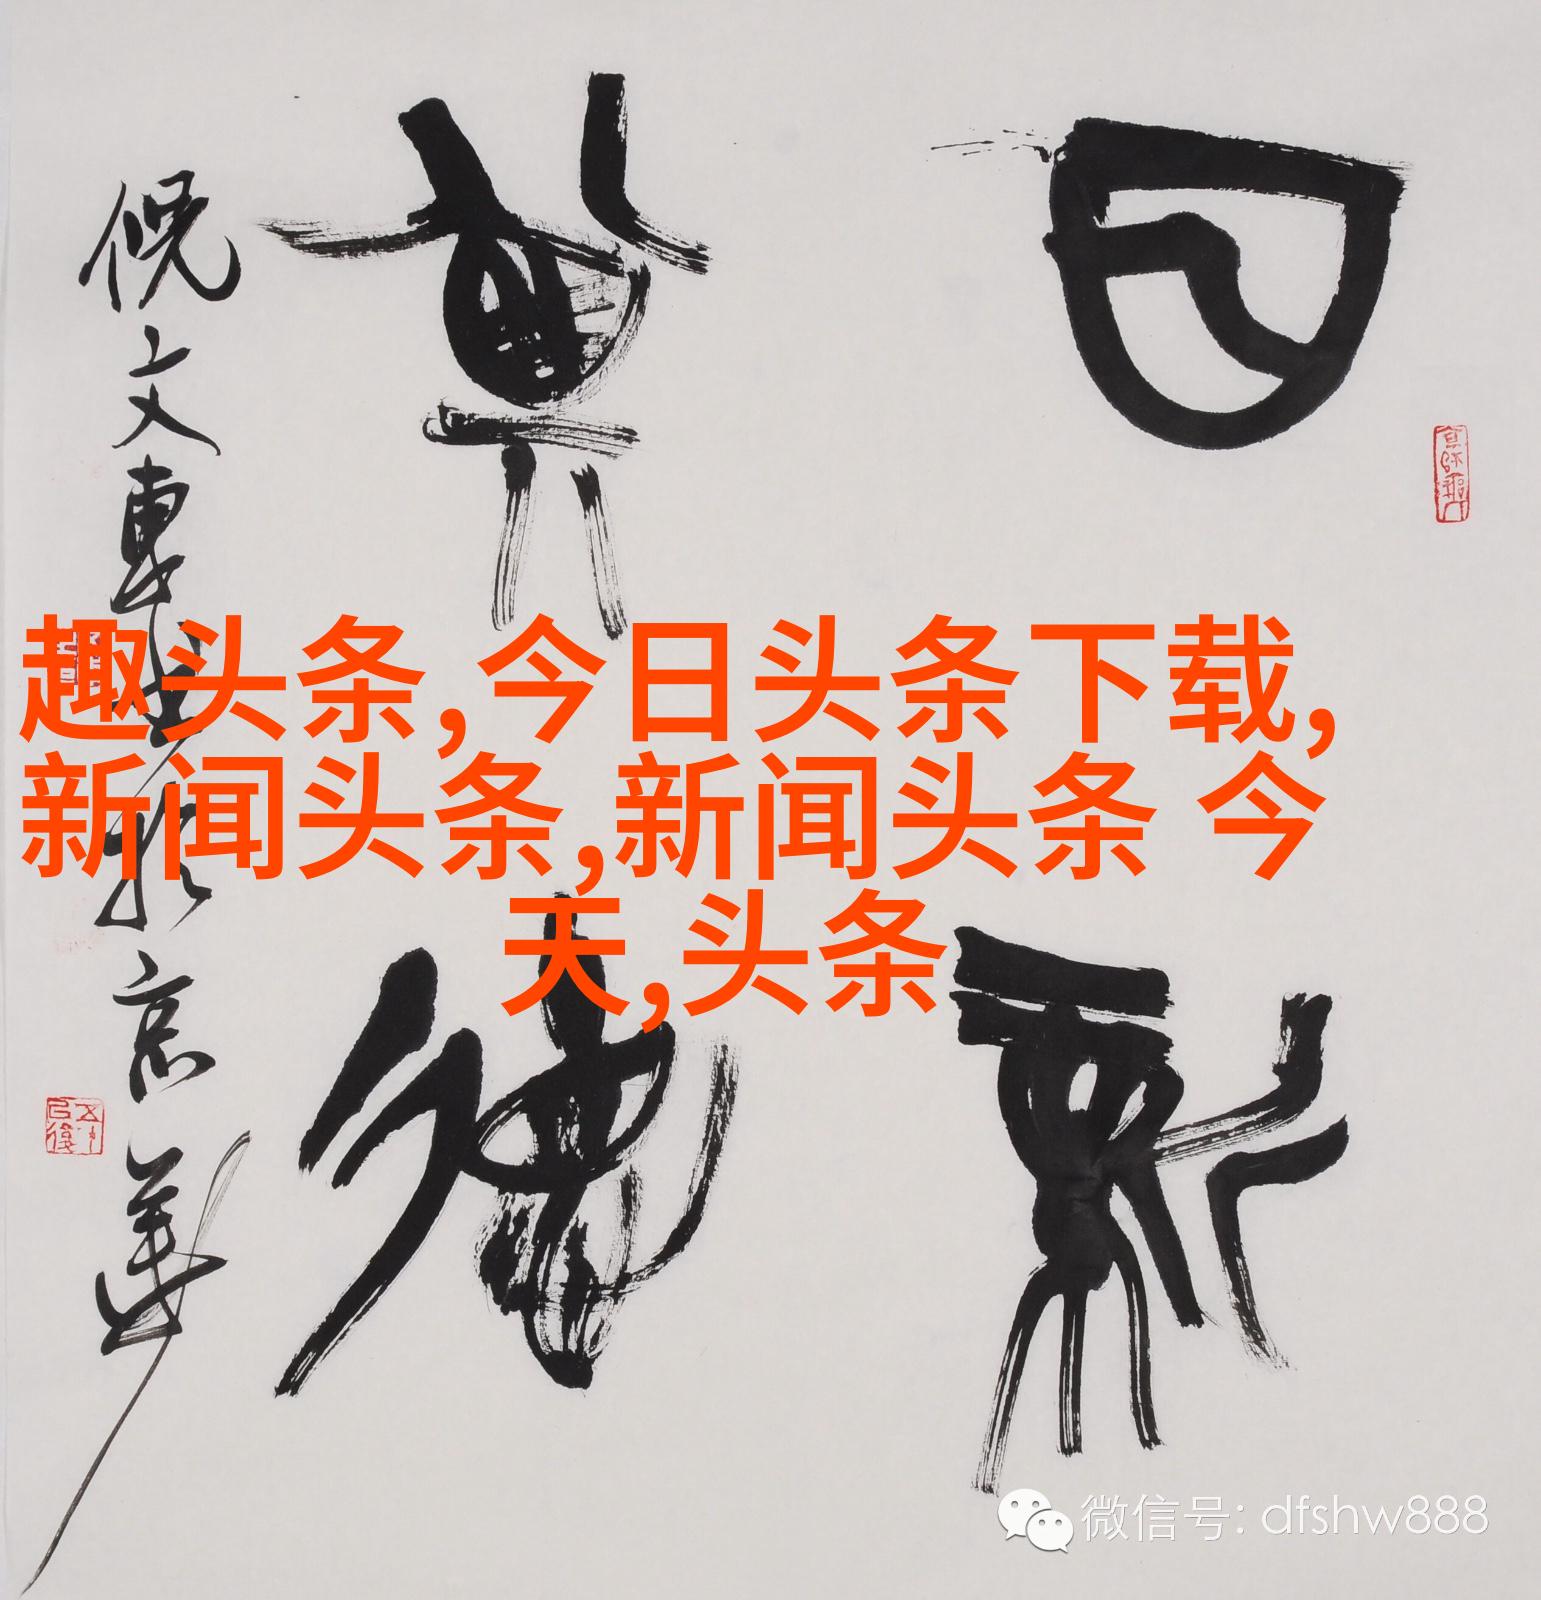 日新
其德
倪文東書於京華
趣头条,今日头条下载,
新闻头条,新闻头条 今
天,头条
微信号: dfshw888